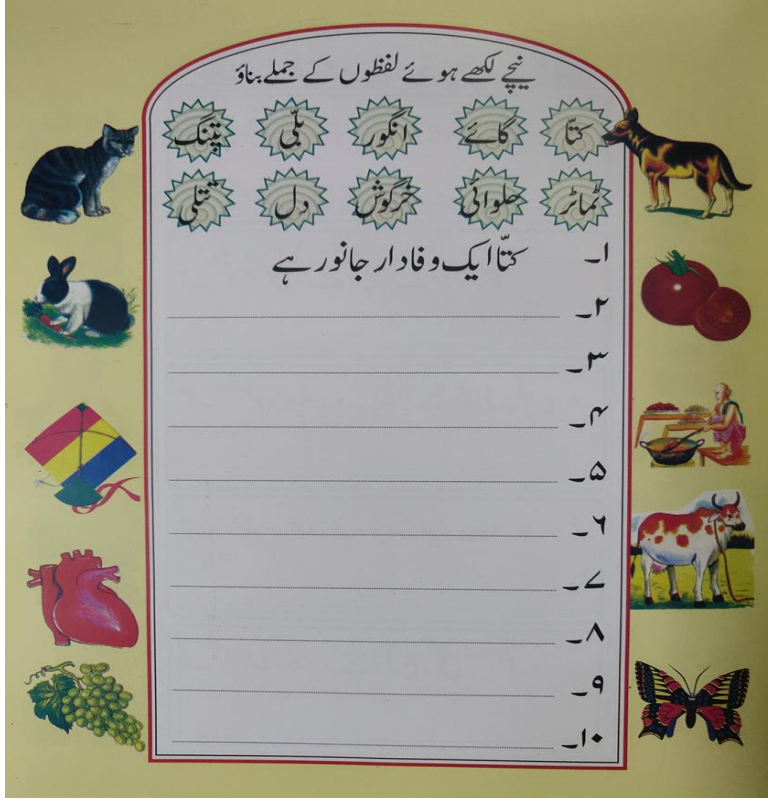 نیچے لکھے ہوئے لفظوں کے جملے بناؤ
کتّا گائے انگور بلّی پتنگ
ٹماٹر حلوائی خرگوش دل تتلی
۱۔ کتّا ایک وفادار جانور ہے
۲۔
۳۔
۴۔
۵۔
۶۔
۷۔
۸۔
۹۔
۱۰۔